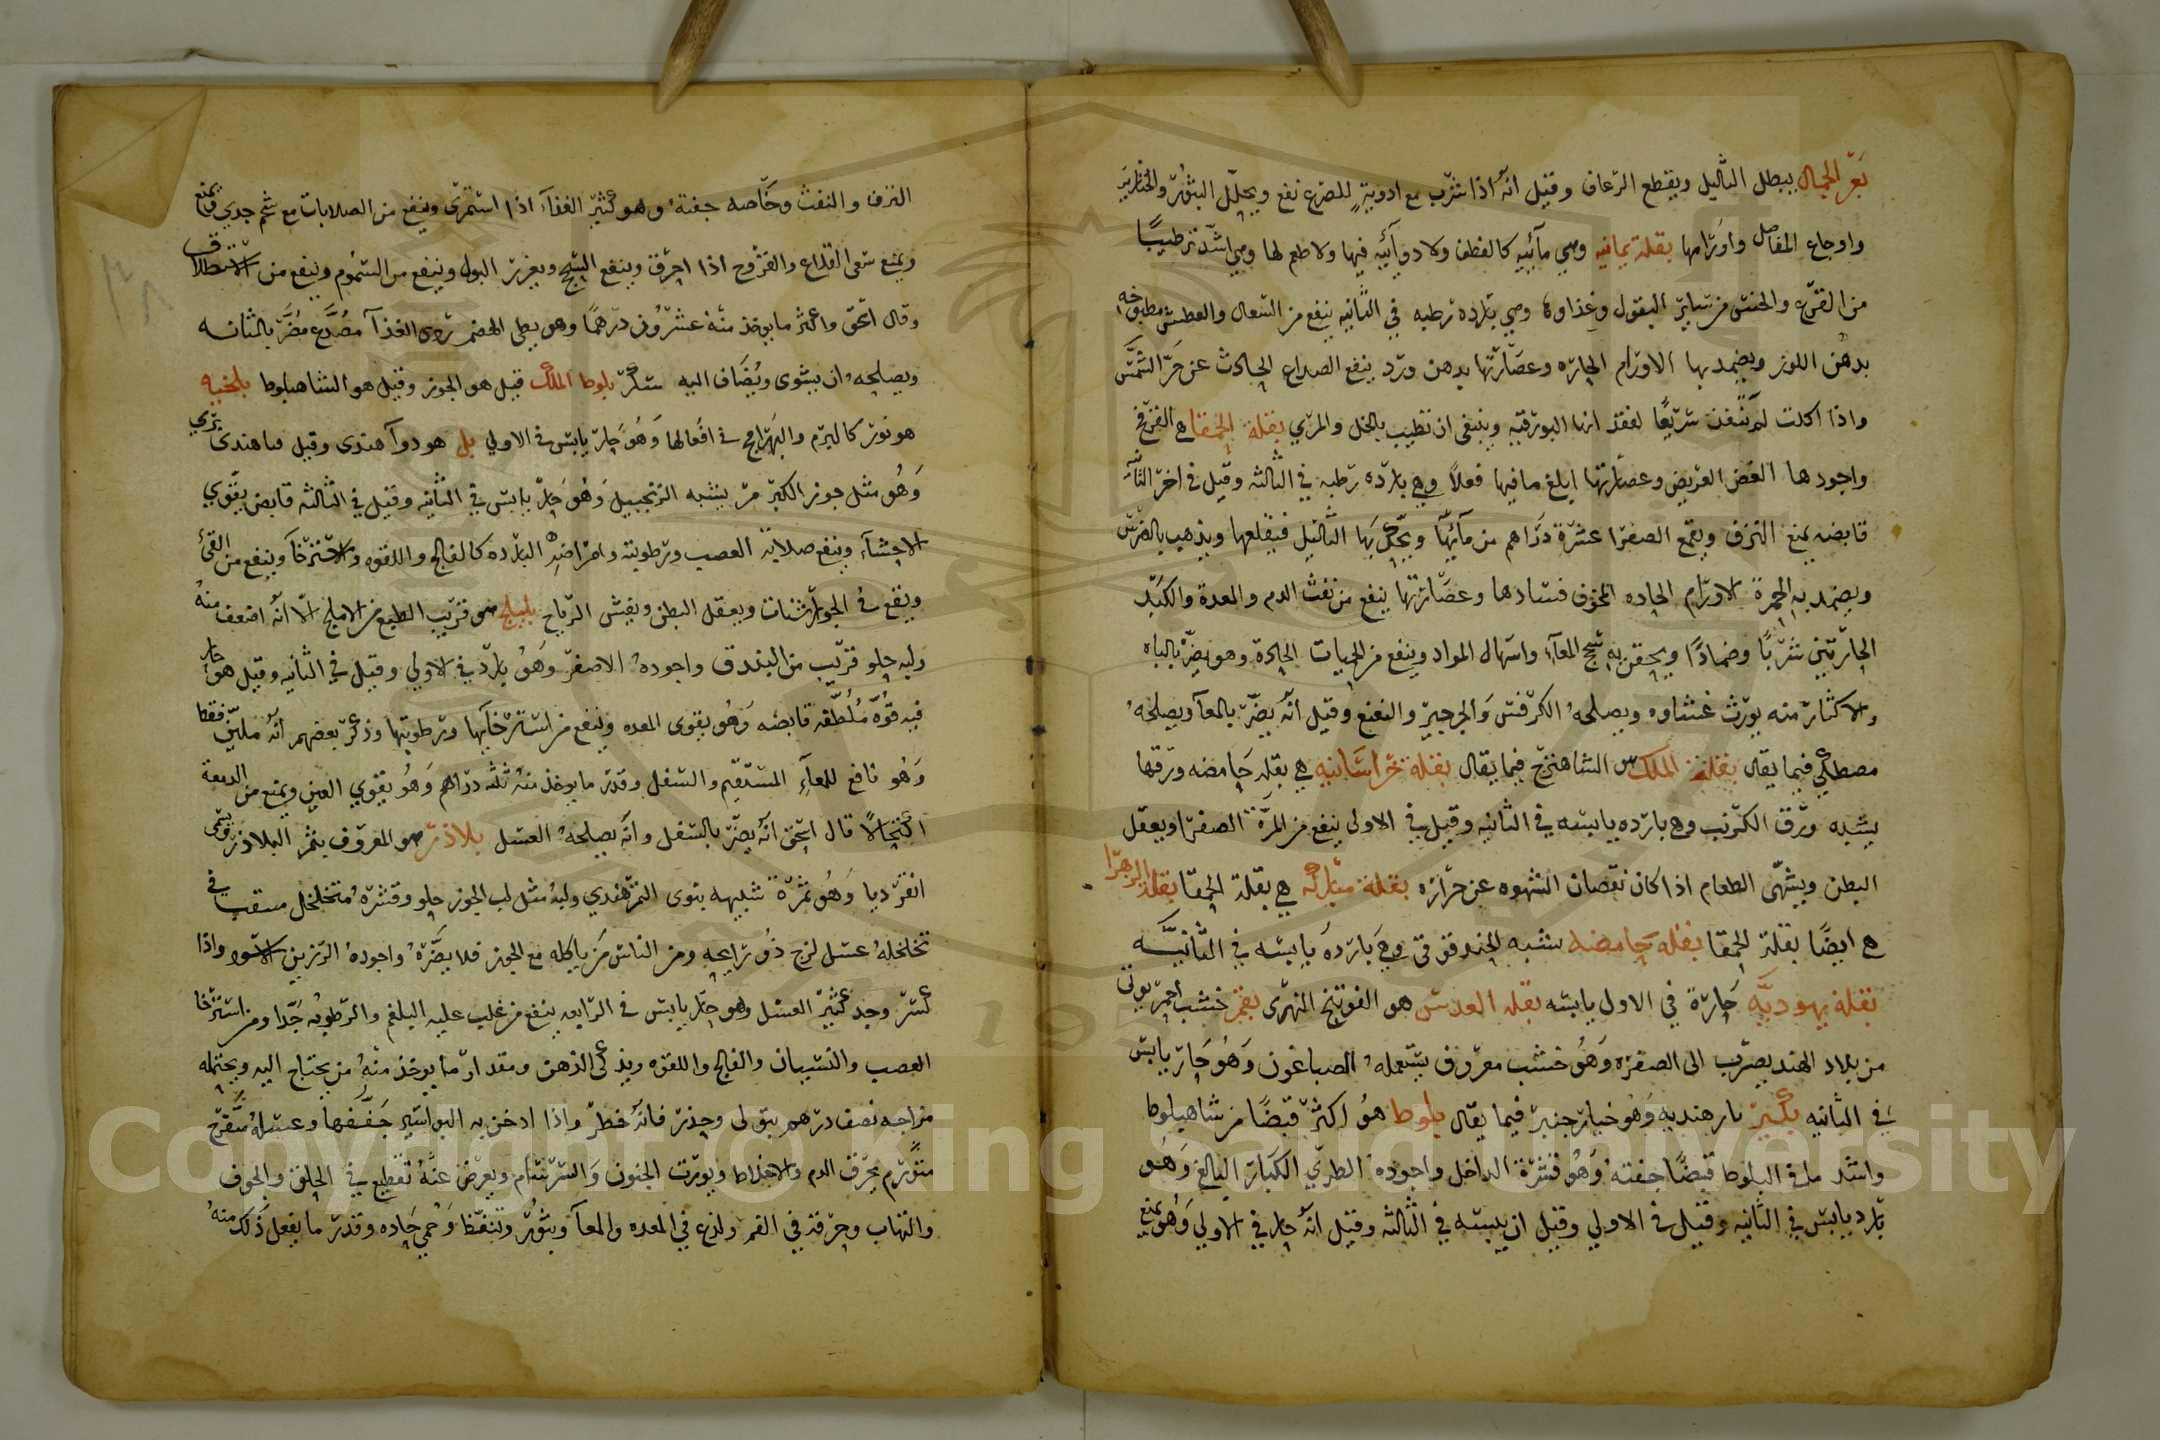 بعر الجمال يبطل الثاليل ويقطع الرعاف وقيل انه اذا شرب مع ادوية للصرع نفع ويحلل البثور والخنازير
واوجاع المفاصل واورامها بقلة يمانيه وهي مائيه كالقطف ولا دوائيه فيها ولا طعم لها وهي اشد ترطيبًا
من القرع والخس من ساير البقول وغذاوها وهي بارده رطبه في الثانيه ينفع من السعال والعطش مطبوخه
بدهن اللوز ويضمد بها الاورام الحاره وعصارتها بدهن ورد ينفع الصداع الحادث عن حر الشمس
واذا اكلت لم تنفذ سريعًا لفقد انها البورقيه وينبغي ان تطيب بالخل والمري بقلة الحمقا هي الفرفخ
واجودها الغض العريض وعصارتها ابلغ ما فيها فعلاً وهي بارده رطبه في الثالثه وقيل في اخر الثانيه
قابضه يمنع النزف ويقمع الصفرا عشرة دراهم من مآئها ويحك بها الثاليل فيقلعها ويذهب بالضرس
ويضمد به الحمرة والاورام الحاده المخوف فسادها وعصارتها ينفع من نفث الدم والمعدة والكبد
الحارتين شربًا وضمادًا ويحقن به لسحج المعآء واسهال المواد وينفع من الحميات الحادة وهو يضر بالباه
والاكثار منه يورث غشاوه ويصلحه الكرفس والجرجير والنعنع وقيل انه يضر بالمعا ويصلحه
مصطكي فيما يقال بقلة الملك هي الشاهترج فيما يقال بقلة خراسانيه هي بقله حامضه ورقها
يشبه ورق الكرنب وهي بارده يابسه في الثانيه وقيل في الاولى ينفع من المرة الصفرا ويعقل
البطن ويشهي الطعام اذا كان نقصان الشهوه عن حراره بقلة مباركه هي بقلة الحمقا بقلة الزهرا
هي ايضًا بقلة الحمقا بقله حامضه تشبه الحندقوقى وهي بارده يابسه في الثانيه
بقلة يهوديه حارة في الاولى يابسه بقله العدس هو الفوتنج النهرى بقم خشب احمر يوتى
من بلاد الهند يضرب الى الصفره وهو خشب معروف يستعمله الصباغون وهو حار يابس
في الثانيه بكير نار هنديه وهو خيار جنبر فيما يقال بلوط هو اكثر قبضًا من شاهبلوط
واشد ما في البلوط قبضًا جفته وهو قشرة الداخل واجوده الطري الكبار البالغ وهو
بارد يابس في الثانيه وقيل في الاولى وقيل ان يبسه في الثالثه وقيل انه حار في الاولى وهو يمنع
النزف والنفث وخاصه جفته وهو كثير الغذآء اذا استمرى وينفع من الصلابات مع شحم جدي ويمنع
ويمنع سعى القلاع والقروح اذا احرق وينفع السحج ويغزر البول وينفع من السموم وينفع من الاستطلاق
وقال اسحق واكثر ما يوخذ منه عشرون درهمًا وهو بطى الهضم ردى الغذآ مصدع مضر بالمثانه
ويصلحه ان يشوى ويضاف اليه سكر بلوط الملك قيل هو الجوز وقيل هو الشاهبلوط بلخيه
هو نور كاليرم والبهرامج في افعالها وهو حار يابس في الاولي بل هو دوآ هندى وقيل قثا هندى بري
وهو مثل جوز الكبر مر يشبه الزنجبيل وهو حار يابس في الثانيه وقيل في الثالثه قابض يقوي
الاحشآء وينفع صلابة العصب ورطوبته وامراضه البارده كالفالج واللقوه والاسترخآ وينفع من القئ
ويقع في الجوارشنات ويعقل البطن ويفش الرياح بليلج هو قريب الطبع من الاملج الا انه اضعف منه
ولبه حلو قريب من البندق واجوده الاصفر وهو بارد في الاولي وقيل في الثانيه وقيل هو حار
فيه قوة ملطفه قابضه وهو يقوى المعده وينفع من استرخآيها ورطوبتها وذكر بعضهم انه ملين فقط
وهو نافع للمعآء المستقيم والسفل وقدر ما يوخذ منه ثلثه دراهم وهو يقوي العين ويمنع من الدمعة
اكتحالًا قال اسحق انه يضر بالسفل وانه يصلحه العسل بلاذر هو المعروف بثمر البلاذر ويسمى
انقرديا وهو ثمرة شبيهه بنوى التمر هندي ولبه مثل لب الجوز حلو وقشره متخلخل مثقب في
تخلخله عسل لزج ذو رايحه ومن الناس من ياكله مع الجوز فلا يضره واجوده الرزين الاسود واذا
كسر وجد كثير العسل وهو حار يابس في الرابعه ينفع من غلب عليه البلغم والرطوبه جدا ومن استرخا
العصب والنسيان والفالج واللقوه ويذكى الذهن ومقدار ما يوخذ منه من يحتاج اليه ويحتمله
مزاجه نصف درهم بتوقى وحذر فانه خطر واذا ادخن به البواسير جففها وعسله مقرح
متورم يحرق الدم والاخلاط ويورث الجنون والسرسام ويعرض عنه تقطيع في الحلق والجوف
والتهاب وحرقه في الفم ولذع في المعده والمعآ وبثور وتنفط وحمي حاده وقدر ما يفعل ذلك منه